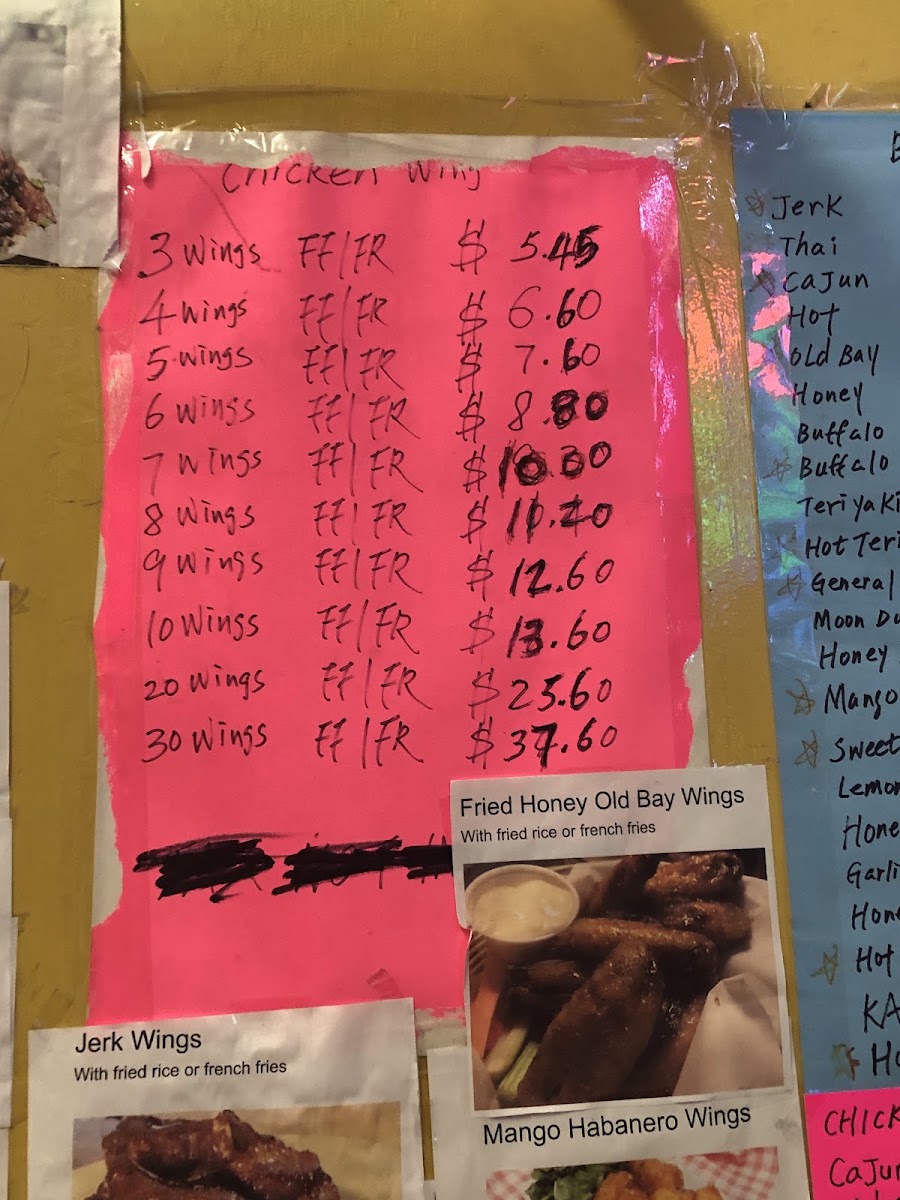 Chicken Wing
3 Wings FF/FR $ 5.45
4 Wings FF/FR $ 6.60
5 Wings FF/FR $ 7.60
6 Wings FF/FR $ 8.80
7 Wings FF/FR $
8 Wings FF/FR $
9 Wings FF/FR $ 12.60
10 Wings FF/FR $ 13.60
20 Wings FF/FR $ 25.60
30 Wings FF/FR $ 37.60
Fried Honey Old Bay Wings
With fried rice or french fries
Jerk Wings
With fried rice or french fries
Mango Habanero Wings
Jerk
Thai
Cajun
Hot
Old Bay
Honey
Buffalo
Buffalo
Teriyaki
Hot Teri
General
Moon Du
Honey
Mango
Sweet
Lemon
Hone
Garli
Hone
Hot
KA
Ho
CHICK
Cajun